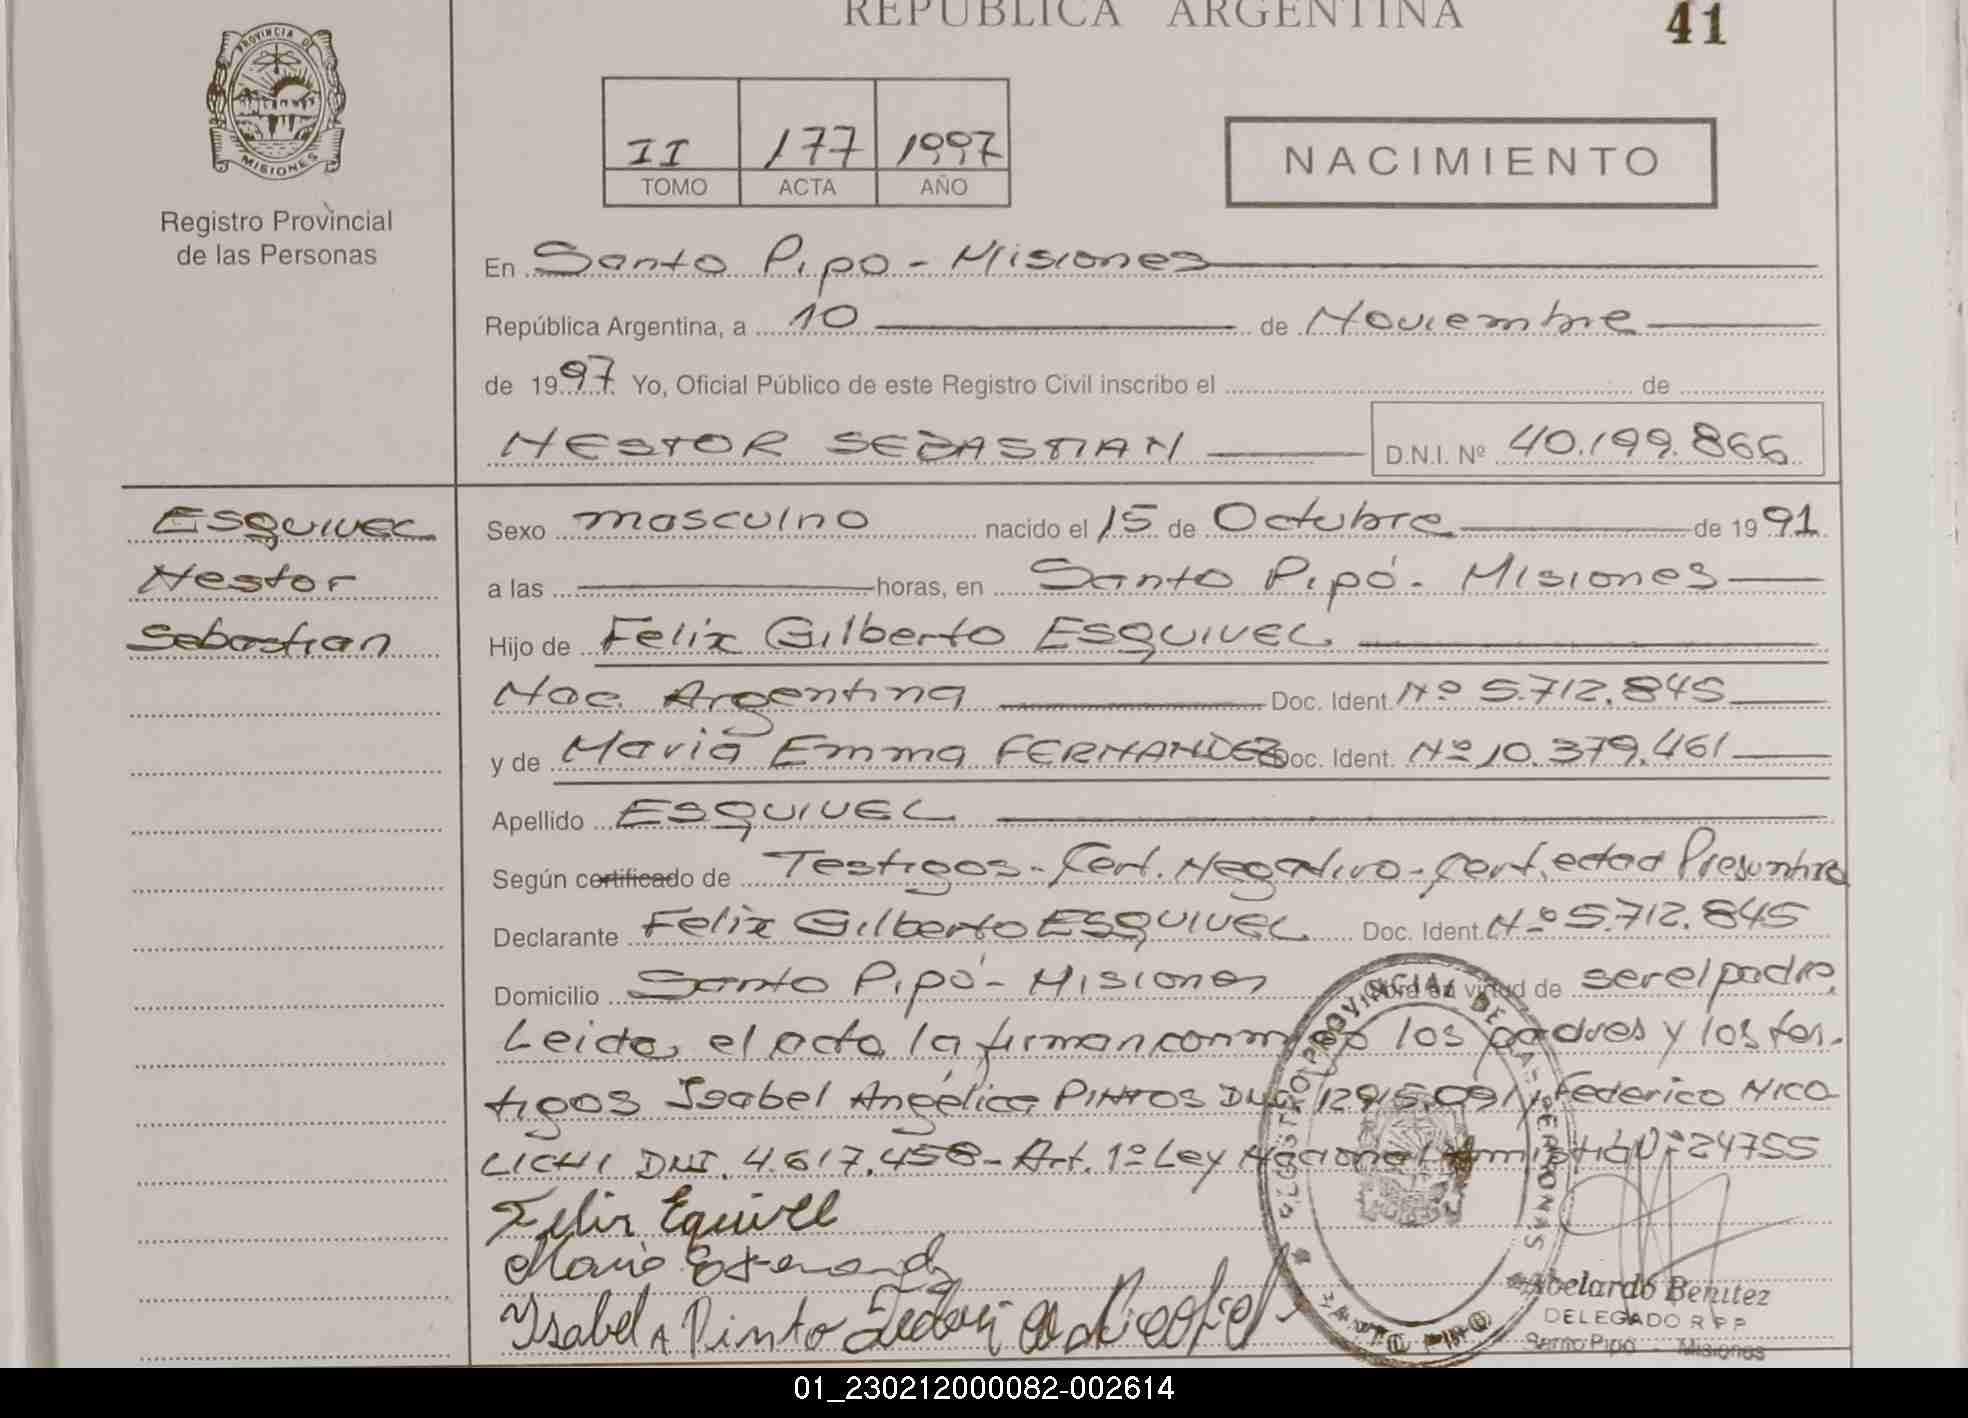 REPUBLICA ARGENTINA
41
PROVINCIA D
MISIONES
Registro Provincial
de las Personas
II 177 1997
TOMO ACTA AÑO
NACIMIENTO
En Santo Pipo - Misiones
República Argentina, a 10 de Noviembre
de 1997 Yo, Oficial Público de este Registro Civil inscribo el de
NESTOR SEBASTIAN D.N.I. Nº 40.199.866
Esquivel
Nestor
Sebastian
Sexo masculino nacido el 15 de Octubre de 1991
a las horas, en Santo Pipó - Misiones
Hijo de Felix Gilberto ESQUIVEL
Nac. Argentina Doc. Ident. Nº 5.712.845
y de Maria Emma FERNANDEZ Doc. Ident. Nº 10.379.461
Apellido ESQUIVEL
Según certificado de Testigos - Cert. Negativo - Cert. edad Presuntiva
Declarante Felix Gilberto ESQUIVEL Doc. Ident. Nº 5.712.845
Domicilio Santo Pipó - Misiones Obra en virtud de ser el padre.
Leida el acta, la firman conmigo los padres y los tes-
tigos Isabel Angélica PINTOS DNI. 12.915.091 y Federico NICO
LICHI DNI. 4.617.458 - Art. 1º Ley Nacional Amnistia Nº 24755
Felix Equivel
Maria E Fernandz
Ysabel A Pinto Federico
REGISTRO PROVINCIAL DE LAS PERSONAS
Abelardo Benitez
DELEGADO R P P
Santo Pipó - Misiones
01_230212000082-002614